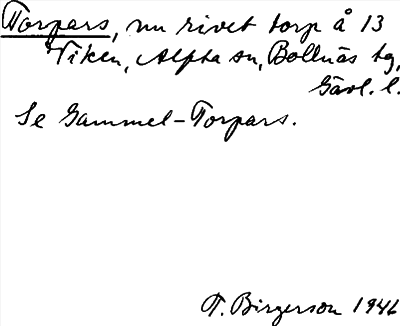 Torpars, nu rivet torp å 13
Viken, Alpha sn, Bollnäs tg,
Gävl. l.
Se Gammel-Torpars.
T. Birgerson 1946